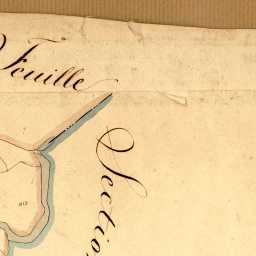 Feuille
Sectio